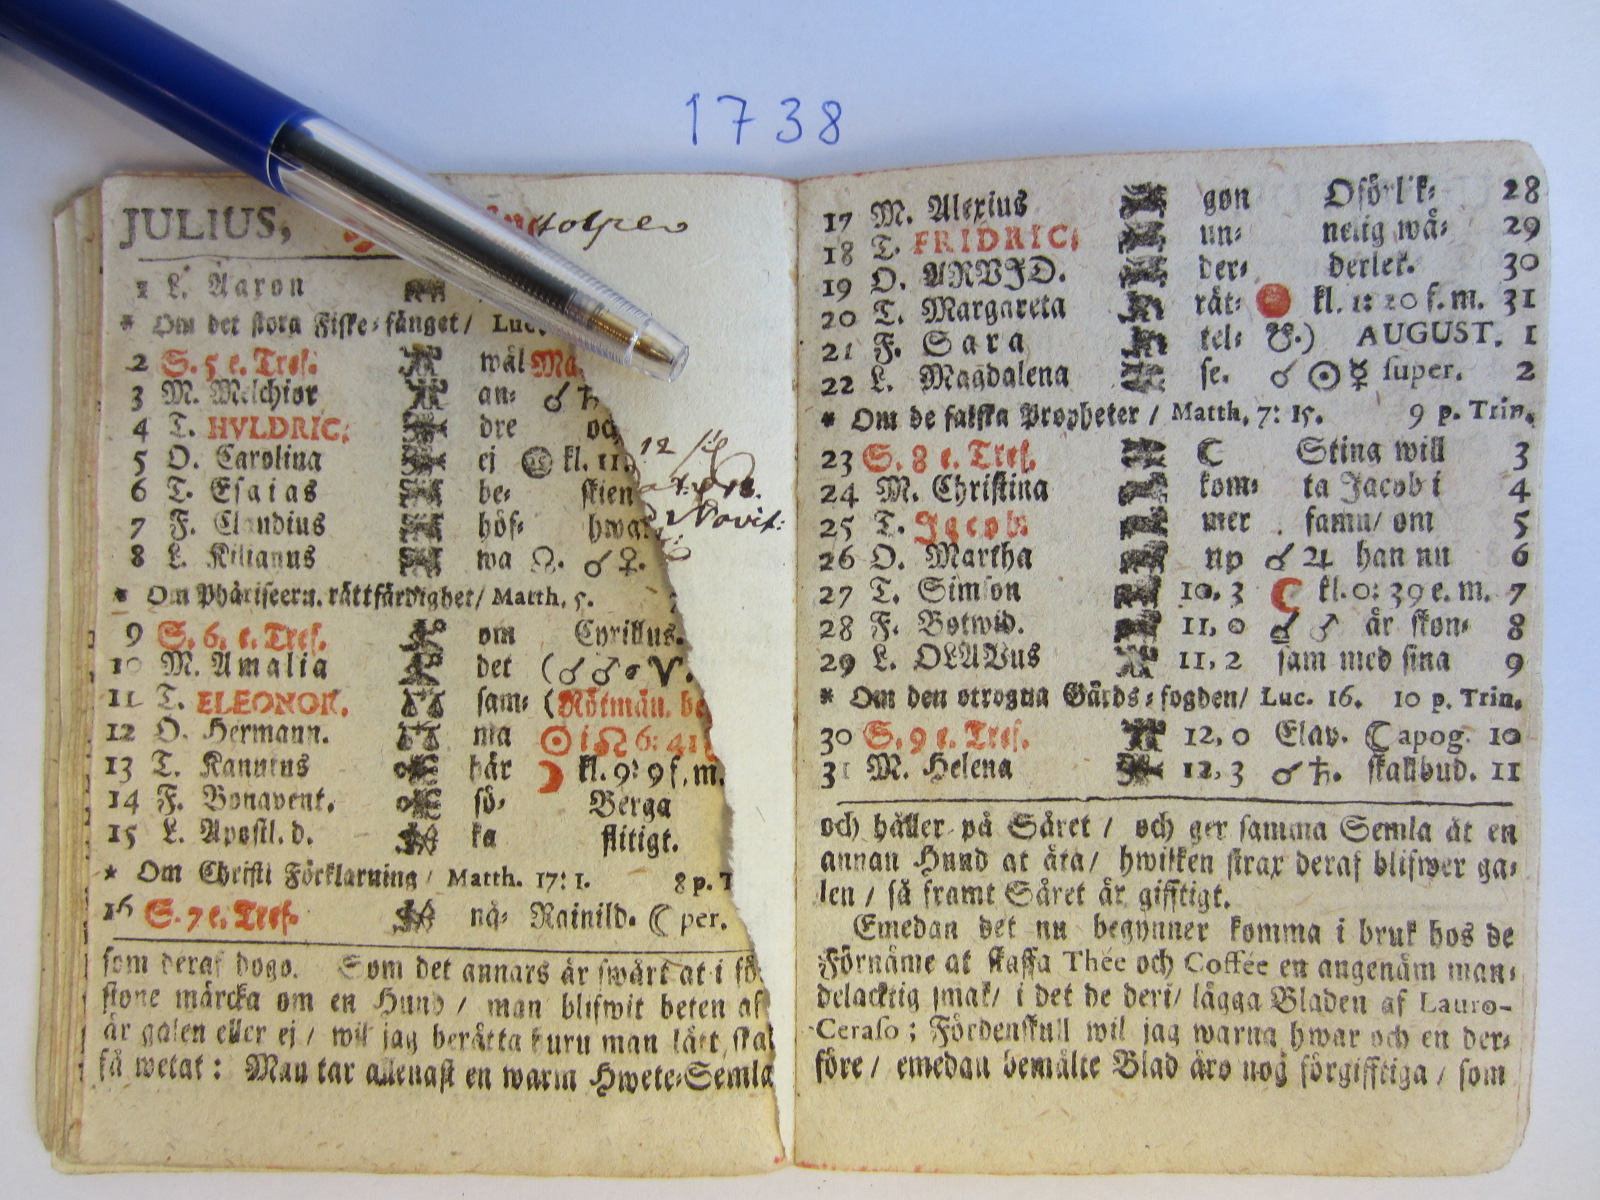 1738
JULIUS,
1 L. Aaron
* Om det stora Fiske-fånget / Luc.
2 S. 5 e. Tref. wäl Ma
3 M. Melchior an- ☌ ♄
4 T. HVLDRIC. dre och
5 O. Carolina ej kl. 11.
6 T. Esaias be- skien
7 F. Claudius höf- hwar
8 L. Kilianus wa ☊. ☌ ♀.
12
Novit:
* Om Phariseern. rättfärdighet / Matth. 5.
9 S. 6. e. Tref. om Cyrillus.
10 M. Amalia det (☌ ♂ ♈.
11 T. ELEONOR. sam- (Rötmån. be
12 O. Hermann. ma ☉ i ♌ 6: 41
13 T. Kanutus här ☽ kl. 9: 9 f. m.
14 F. Bonavent. sö- Berga
15 L. Apostl. d. ka flitigt.
* Om Christi Förklarning / Matth. 17: 1. 8 p. T
16 S. 7 e. Tref. nå- Rainild. ☾ per.
som deraf dogo. Som det annars är swårt at i fö
stone märcka om en Hund / man blifwit beten af
är galen eller ej / wil jag berätta huru man lätt, skal
få wetat : Man tar allenast en warm Hwete-Semla
17 M. Alexius gon Osörlik- 28
18 T. FRIDRIC. un- nelig wå- 29
19 O. ARVID. der- derlek. 30
20 T. Margareta rät- kl. 1: 20 f. m. 31
21 F. Sara tel- ☋.) AUGUST. 1
22 L. Magdalena se. ☌ ☉ ☿ super. 2
* Om de falska Propheter / Matth. 7: 15. 9 p. Trin.
23 S. 8 e. Tref. ☾ Sting will 3
24 M. Christina kom- ta Jacob i 4
25 T. Jacob. mer famn / om 5
26 O. Martha up ☌ ♃ han nu 6
27 T. Simson 10, 3 ☾ kl. 0: 39 e. m. 7
28 F. Botwid. 11, 0 ☌ ♂ är skon- 8
29 L. OLAVus 11, 2 sam med sina 9
* Om den otrogna Gårds-fogden / Luc. 16. 10 p. Trin.
30 S. 9 e. Tref. 12, 0 Elav. ☾ apog. 10
31 M. Helena 12, 3 ☌ ♄. skallbud. 11
och håller på Såret / och ger samma Semla åt en
annan Hund at äta / hwilken strax deraf blifwer ga-
len / så framt Såret är gifftigt.
Emedan det nu begynner komma i bruk hos de
Förnäme at skaffa Thée och Coffée en angenäm man-
delacktig smak / i det de deri / lägga Bladen af Lauro-
Ceraso ; Fördenskull wil jag warna hwar och en der-
före / emedan bemälte Blad äro nog förgifftiga / som